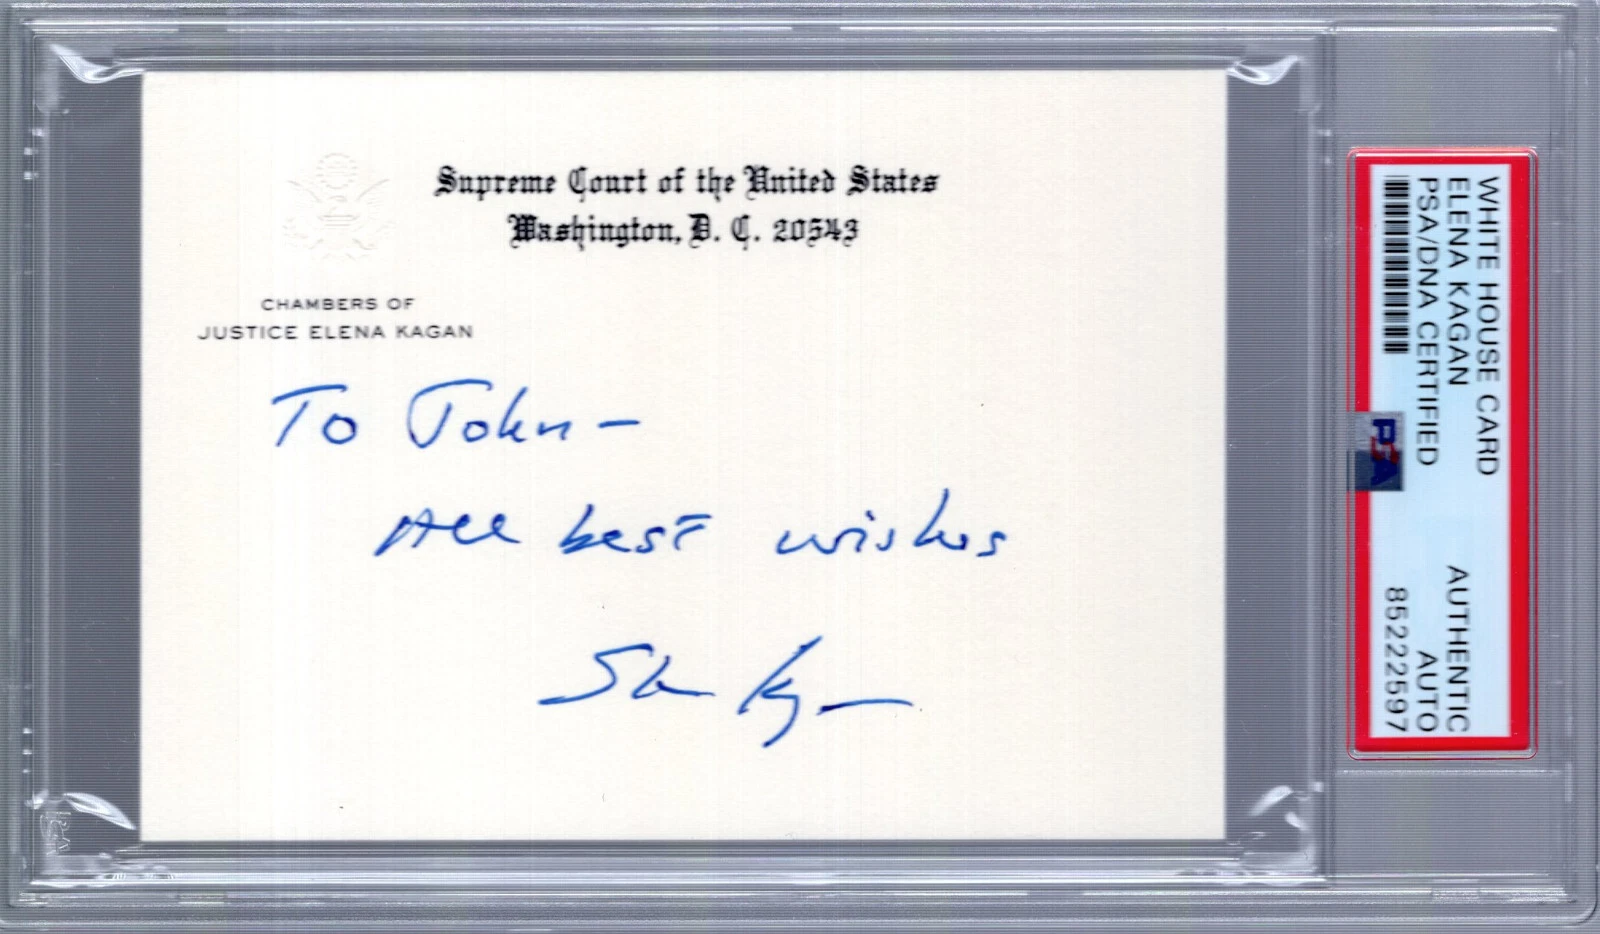 Supreme Court of the United States
Washington, D. C. 20543
CHAMBERS OF
JUSTICE ELENA KAGAN
To John-
All best wishes
WHITE HOUSE CARD
ELENA KAGAN
PSA/DNA CERTIFIED
AUTHENTIC
AUTO
85222597
PSA